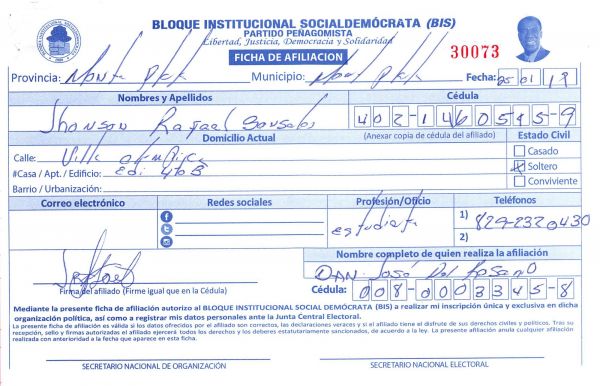 BLOQUE INSTITUCIONAL SOCIALDEMÓCRATA (BIS)
PARTIDO PEÑAGOMISTA
Libertad, Justicia, Democracia y Solidaridad
FICHA DE AFILIACION
30073
Provincia: Monte Plata Municipio: Monte Plata Fecha: 25 01 19
Nombres y Apellidos Cédula
Jhonson Rafael Gonsales 402-1460545-9
Domicilio Actual (Anexar copia de cédula del afiliado) Estado Civil
Calle: Villa olimpica Casado
#Casa / Apt. / Edificio: Edi 4to B Soltero
Barrio / Urbanización: Conviviente
Correo electrónico Redes sociales Profesión/Oficio Teléfonos
estudiante 1) 829-2320430
2)
Nombre completo de quien realiza la afiliación
DAN José Del Rosario
Firma del afiliado (Firme igual que en la Cédula) Cédula: 008-0003345-8
Mediante la presente ficha de afiliación autorizo al BLOQUE INSTITUCIONAL SOCIAL DEMÓCRATA (BIS) a realizar mi inscripción única y exclusiva en dicha
organización política, así como a registrar mis datos personales ante la Junta Central Electoral.
La presente ficha de afiliación es válida si los datos ofrecidos por el afiliado son correctos, las declaraciones veraces y si el afiliado tiene el disfrute de sus derechos civiles y políticos. Tras su
recepción, sello y firmas autorizadas el afiliado ejercerá todos los derechos y los deberes estatutariamente sancionados, de acuerdo a la ley. La presente afiliación anula cualquier afiliación
realizada con anterioridad a la fecha que aparece en esta ficha.
SECRETARIO NACIONAL DE ORGANIZACIÓN SECRETARIO NACIONAL ELECTORAL